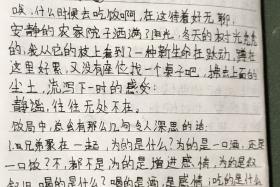 唉，什么时候去吃饭啊，在这待着好无聊，
安静的农家院子洒满了阳光，冬天的树光秃秃
的，我从它的枝上看到了一种新生命在跃动，蹲在
这里好累，又没有座位找一个桌子吧，拂去上面的
尘土，流泻下一时的感受：
静谧，往往无处不在。
饭局中，总会有那么几句令人深思的话：
1.四兄弟聚在一起，为的是什么？为的是一口酒，还是
一口饭？不，都不是为的是增进感情，为的是叙
叙旧，喝的是什么？喝的是酒，是感情；吃的是什么